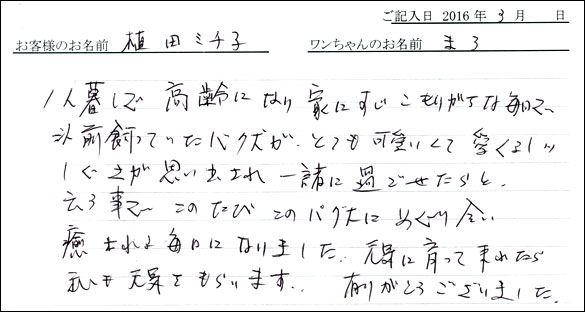 ご記入日 2016年 3月 日
お客様のお名前 植田ミチ子 ワンちゃんのお名前 まろ
1人暮しで高齢になり家にすじこもりがちな毎日で
以前飼っていたパグ犬が、とても可愛いくて愛くるしい
しぐさが思い出され一諸に過ごせたらと、
云う事で このたびこのパグ犬にめぐり合い
癒される毎日になりました。元気に育って来れたら
私も元気をもらいます。 ありがとうございました。